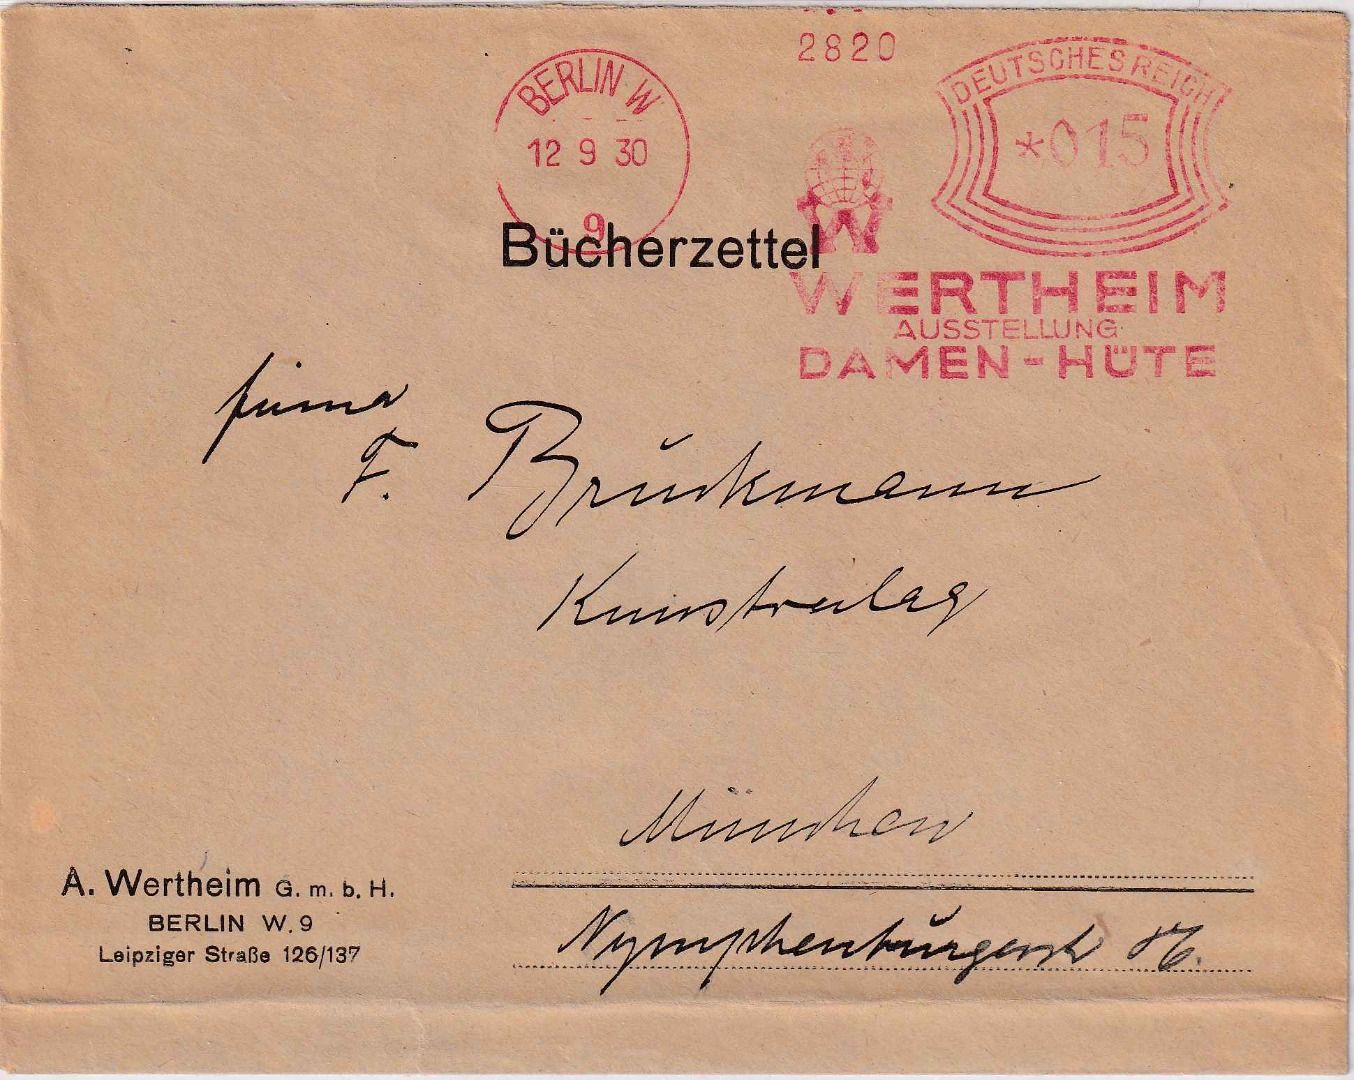 2820
BERLIN W
12 9 30
9
DEUTSCHES REICH
*015
W
WERTHEIM
AUSSTELLUNG
DAMEN-HÜTE
Bücherzettel
Firma
F. Bruckmann
Kunstverlag
München
Nymphenburgerstr 86.
A. Wertheim G. m. b. H.
BERLIN W. 9
Leipziger Straße 126/137